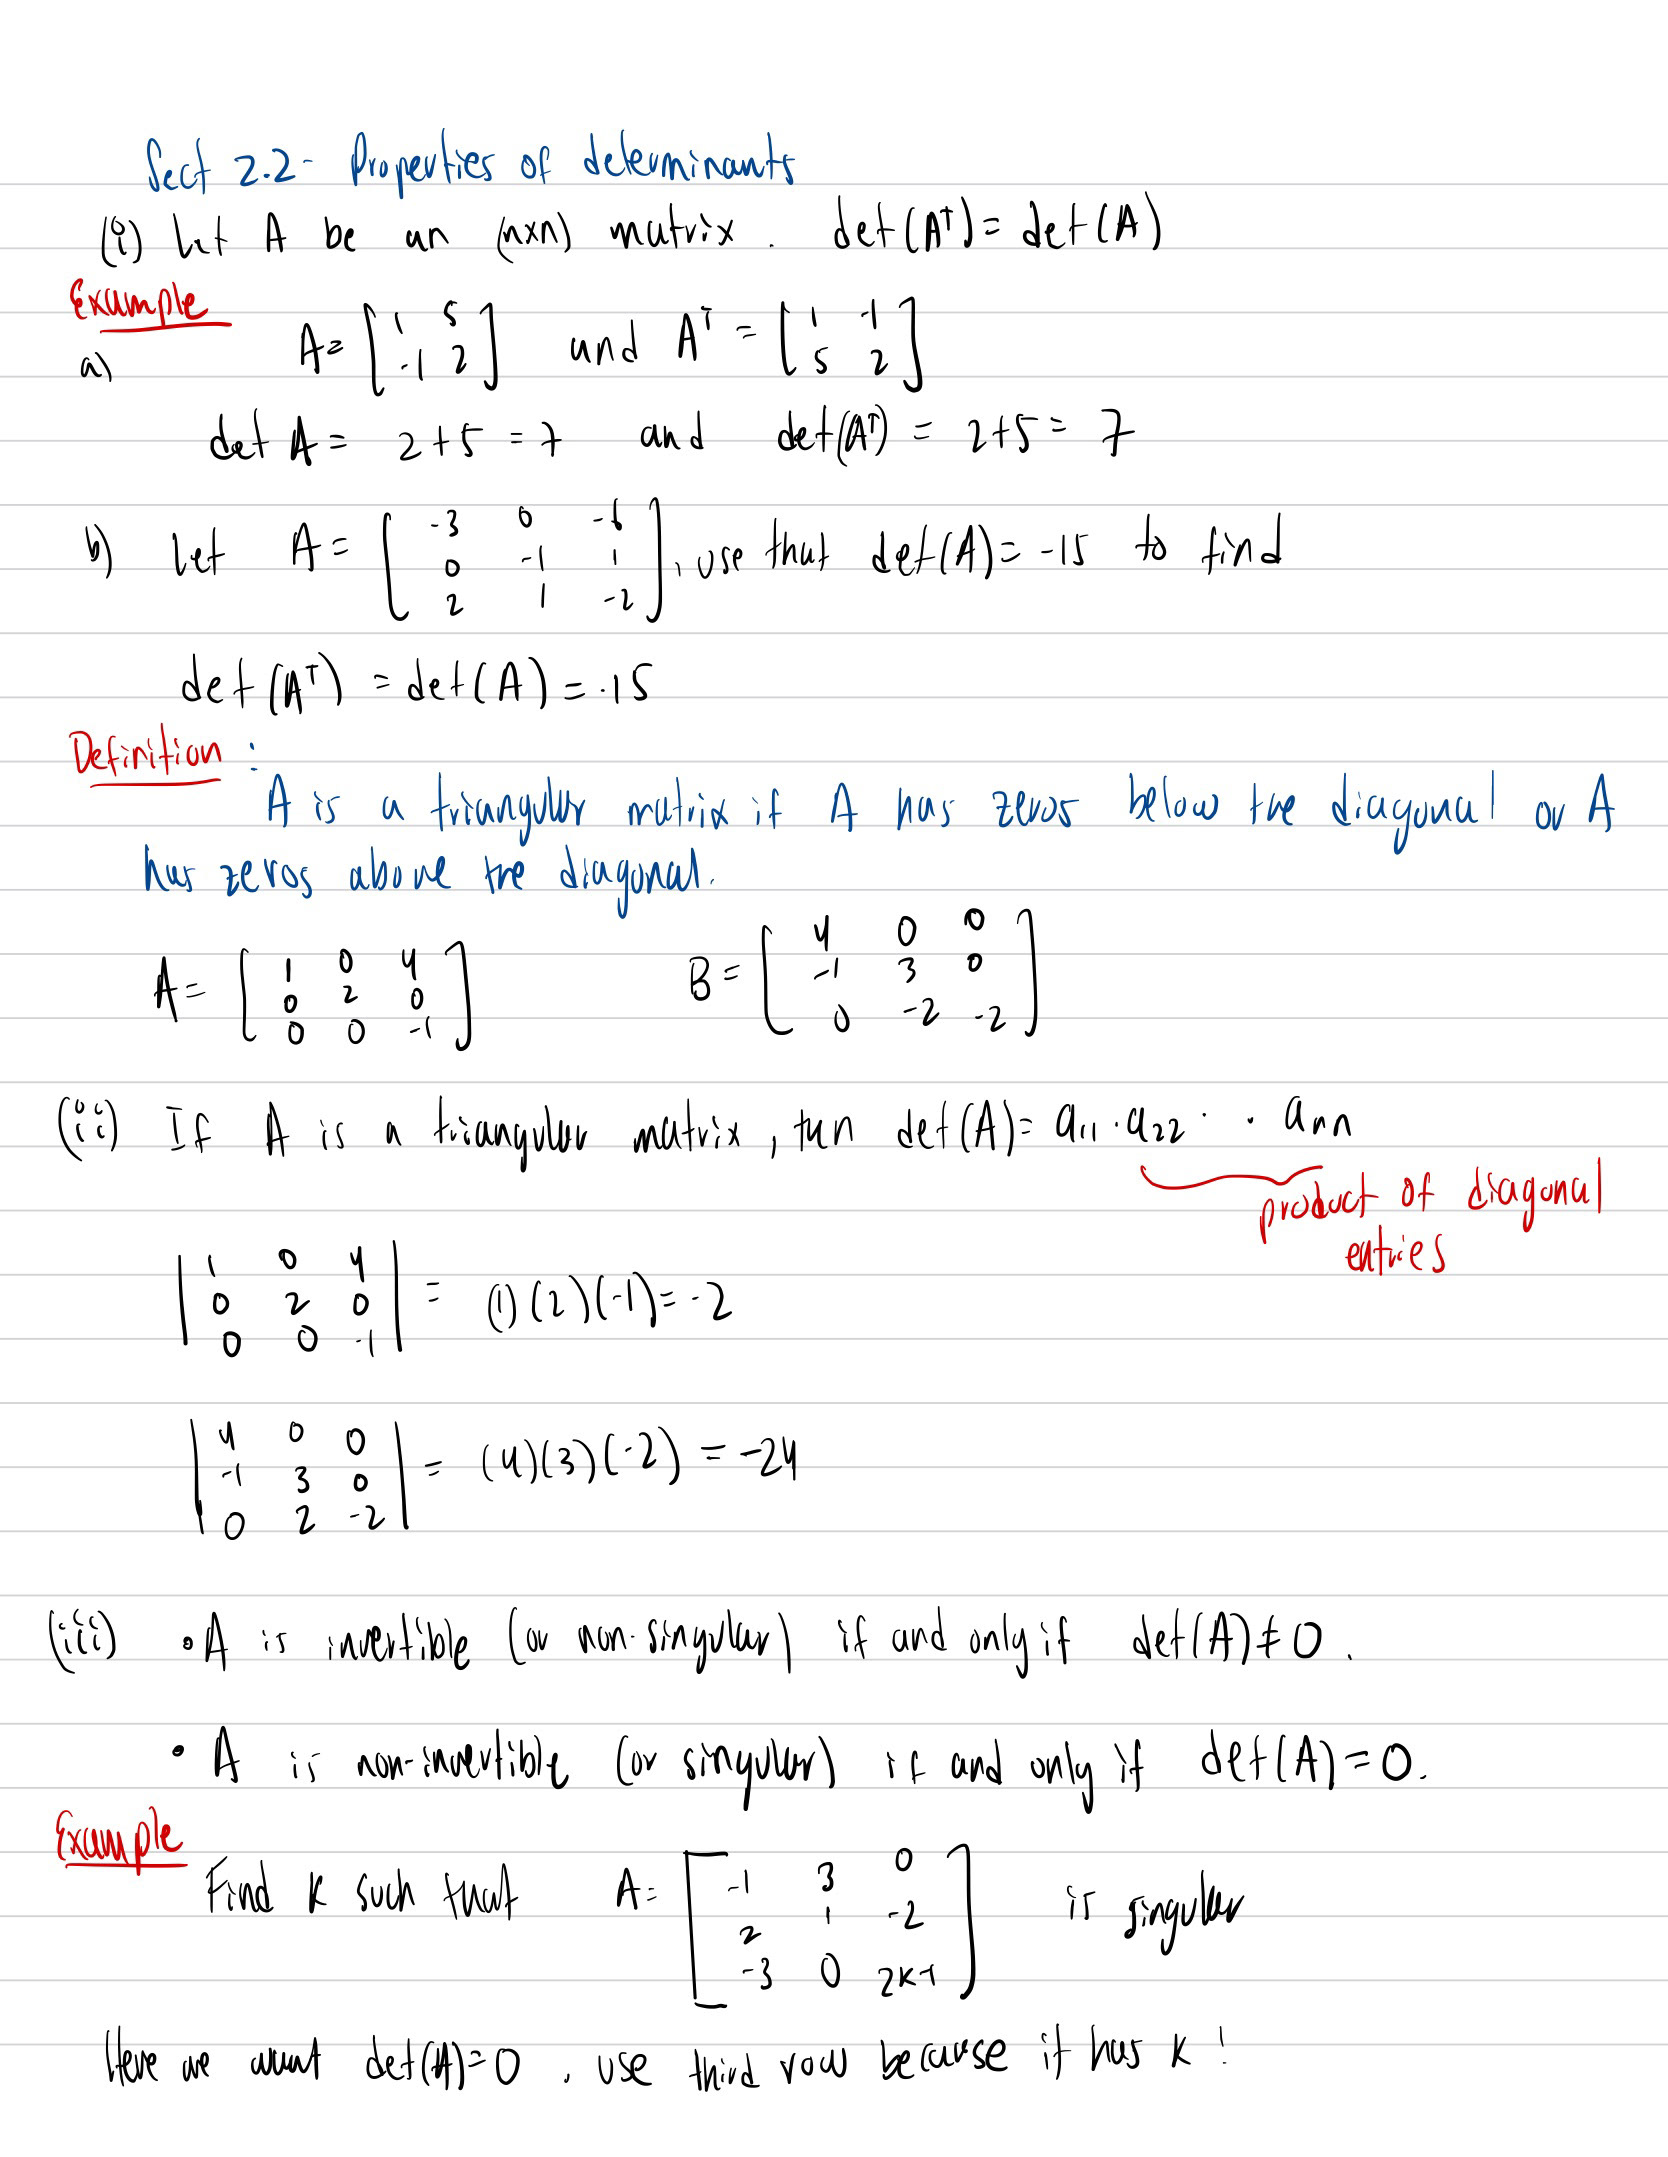 Sect 2.2- Properties of determinants
(i) Let A be an (n×n) matrix. det(Aᵀ) = det(A)
Example
a) A= [1 5; -1 2] and Aᵀ = [1 -1; 5 2]
det A = 2+5 = 7 and det(Aᵀ) = 2+5 = 7
b) Let A = [-3 0 -6; 0 -1 1; 2 1 -2], use that det(A) = -15 to find
det(Aᵀ) = det(A) = -15
Definition :
A is a triangular matrix if A has zeros below the diagonal or A
has zeros above the diagonal.
A = [1 0 4; 0 2 0; 0 0 -1] B = [4 0 0; -1 3 0; 0 -2 -2]
(ii) If A is a triangular matrix, then det(A) = a₁₁ · a₂₂ · · aₙₙ
product of diagonal
entries
|1 0 4; 0 2 0; 0 0 -1| = (1)(2)(-1) = -2
|4 0 0; -1 3 0; 0 2 -2| = (4)(3)(-2) = -24
(iii) • A is invertible (or non-singular) if and only if det(A) ≠ 0.
• A is non-invertible (or singular) if and only if det(A) = 0.
Example
Find k such that A = [-1 3 0; 2 1 -2; -3 0 2k-1] is singular
Here we want det(A) = 0. use third row because it has k!